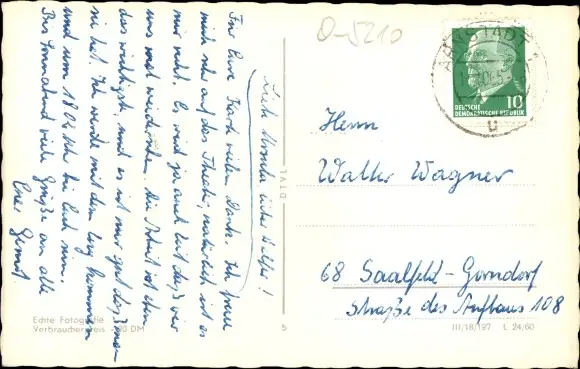 Liebe Ursula, lieber Walter!
Für Eure Karte vielen Dank. Ich freue
mich sehr auf das Theater, natürlich ist es
mir recht. Es wird ja auch Zeit daß wir
uns mal wiedersehen. Die Arbeit ist eben
das wichtigste, und es ist nur gut daß man
sie hat. Ich werde mit dem Zug kommen
und um 18.04 Uhr bei Euch sein.
Bis Sonnabend viele Grüße an alle
Euer
Echte Fotografie
Verbraucherpreis DM
5
O-5210
ARNSTADT
DEUTSCHE
DEMOKRATISCHE REPUBLIK
10
u
Herrn
Walter Wagner
68 Saalfeld-Gorndorf
Straße des Aufbaus 108
III/18/197 L 24/60